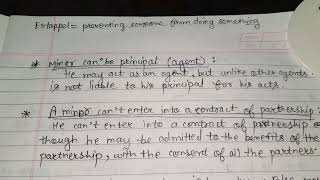 Estoppel = preventing someone from doing something
* Minor can be principal (agent) :
He may act as an agent, but unlike other agents
is not liable to his principal for his acts.
* A minor can't enter into a contract of partnership :
He can't enter into a contract of partnership
though he may be admitted to the benefits of the
partnership, with the consent of all the partners.